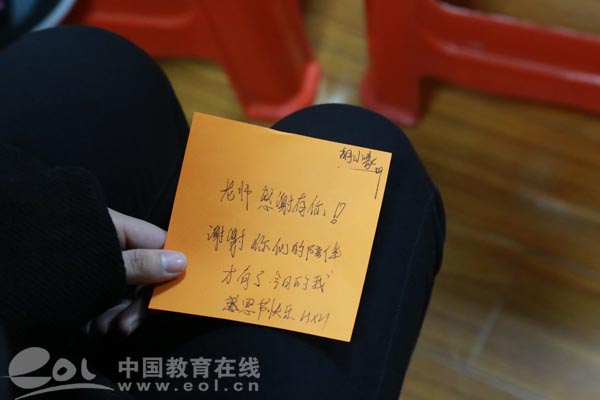 老师 感谢有你!!
谢谢你们的陪伴
才有了今日的我
感恩节快乐
中国教育在线
www.eol.cn
eol